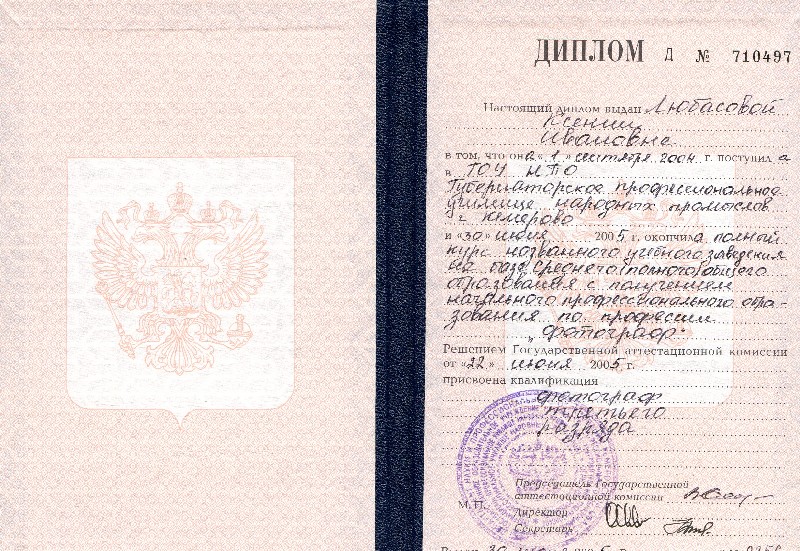 ДИПЛОМ Д № 710497
Настоящий диплом выдан Любасовой
Ксении
Ивановне
в том, что она «1» сентября 2004 г. поступила
в ГОУ НПО
Губернаторское профессиональное
училище народных промыслов
г. Кемерово
и «30» июня 2005 г. окончила полный
курс названного учебного заведения
на базе среднего (полного) общего
образования с получением
начального профессионального обра-
зования по профессии
"фотограф"
Решением Государственной аттестационной комиссии
от «22» июня 2005 г.
присвоена квалификация
фотограф
третьего
разряда
Председатель Государственной
аттестационной комиссии
М.П.
Директор
Секретарь